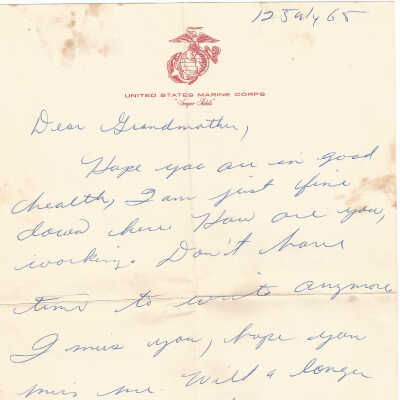 12 July 65
UNITED STATES MARINE CORPS
"Semper Fidelis"
Dear Grandmother,
Hope you are in good
health, I am just fine
down here How are you,
working. Don't have
time to write anymore
I miss you, hope you
miss me. Will a longer